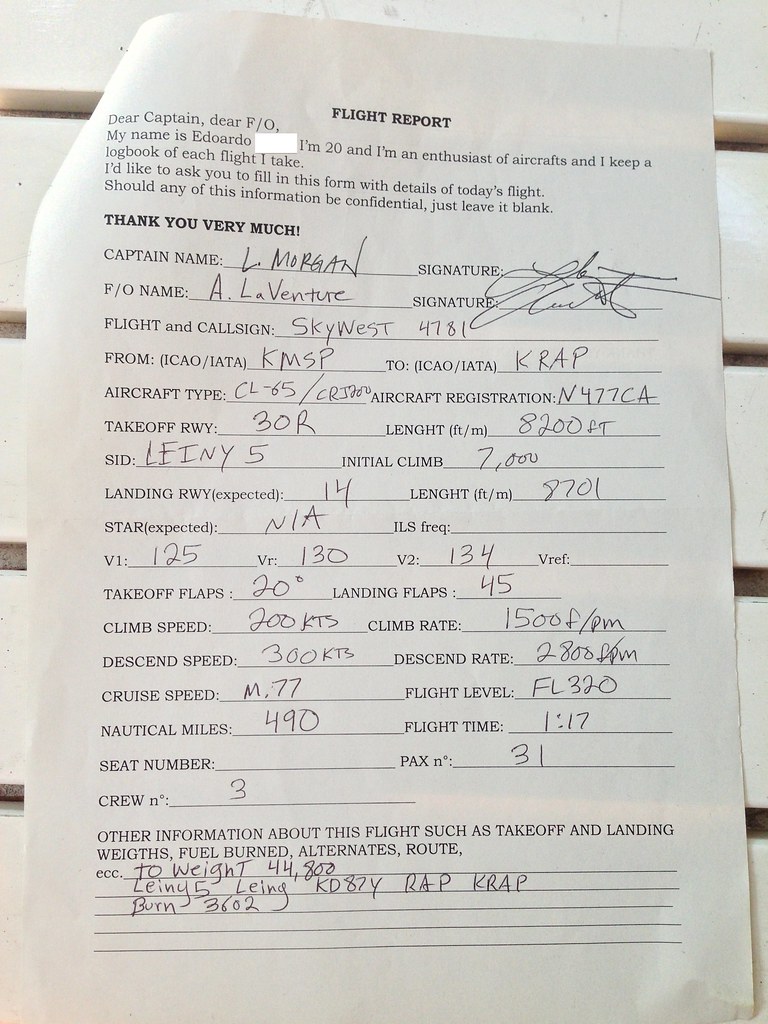 FLIGHT REPORT
Dear Captain, dear F/O,
My name is Edoardo I'm 20 and I'm an enthusiast of aircrafts and I keep a
logbook of each flight I take.
I'd like to ask you to fill in this form with details of today's flight.
Should any of this information be confidential, just leave it blank.
THANK YOU VERY MUCH!
CAPTAIN NAME: L. MORGAN SIGNATURE:
F/O NAME: A. LaVenture SIGNATURE:
FLIGHT and CALLSIGN: SkyWest 4781
FROM: (ICAO/IATA) KMSP TO: (ICAO/IATA) KRAP
AIRCRAFT TYPE: CL-65/CRJ200 AIRCRAFT REGISTRATION: N477CA
TAKEOFF RWY: 30R LENGHT (ft/m) 8200 ft
SID: LEINY 5 INITIAL CLIMB 7,000
LANDING RWY(expected): 14 LENGHT (ft/m) 8701
STAR(expected): N/A ILS freq:
V1: 125 Vr: 130 V2: 134 Vref:
TAKEOFF FLAPS : 20° LANDING FLAPS : 45
CLIMB SPEED: 200 KTS CLIMB RATE: 1500 f/pm
DESCEND SPEED: 300 KTS DESCEND RATE: 2800 f/pm
CRUISE SPEED: M.77 FLIGHT LEVEL: FL320
NAUTICAL MILES: 490 FLIGHT TIME: 1:17
SEAT NUMBER: PAX n°: 31
CREW n°: 3
OTHER INFORMATION ABOUT THIS FLIGHT SUCH AS TAKEOFF AND LANDING
WEIGTHS, FUEL BURNED, ALTERNATES, ROUTE,
ecc. TO Weight 44,800
Leiny5 Leiny KD87Y RAP KRAP
Burn 3602